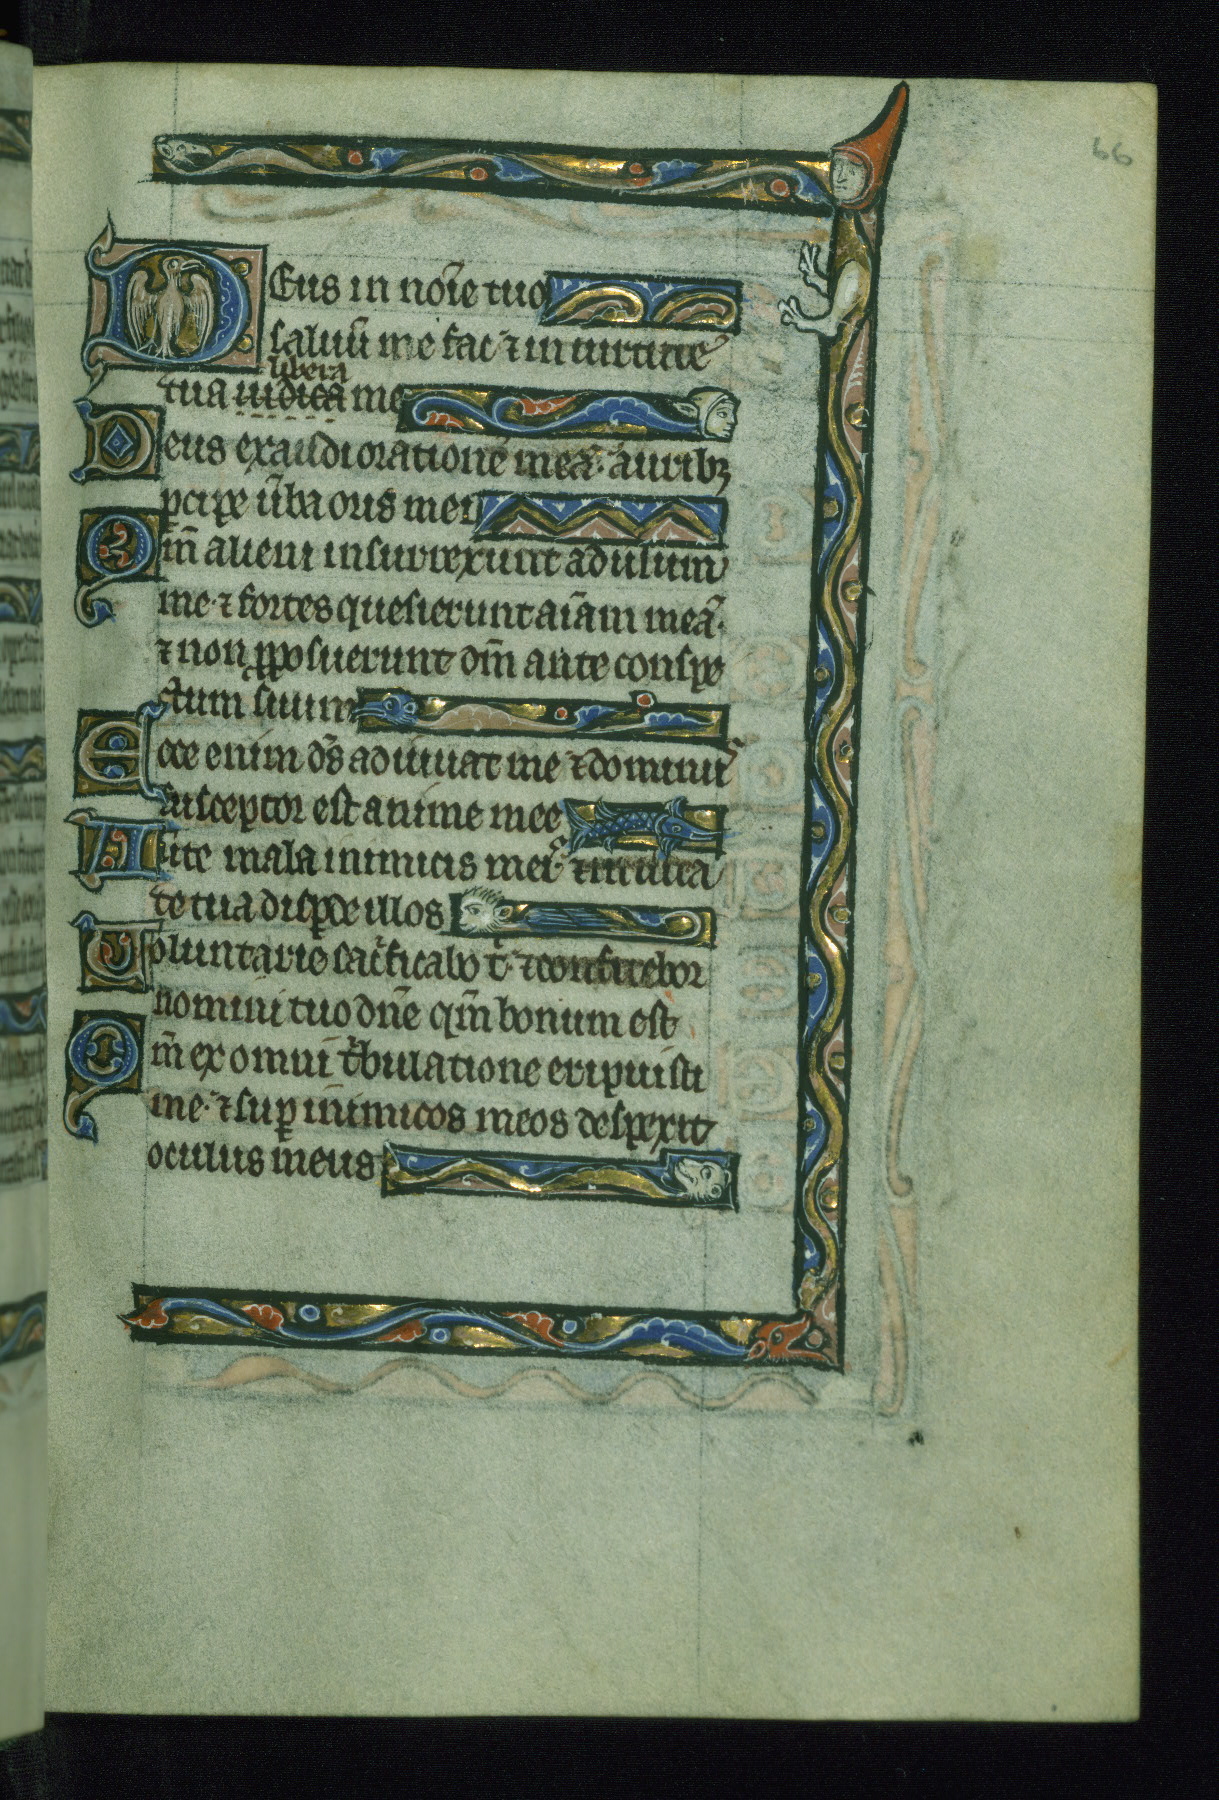 66
Deus in noīe tuo
saluū me fac ⁊ in uirtute
libera
tua iudica me
Deus exaudi orationē meā· aurib;
ꝑcipe ūba oris mei
Qm̄ alieni insurrexunt adūsum
me ⁊ fortes quesierunt aīam meā·
⁊ non ꝓposuerunt dm̄ ante conspe
ctum suum
Ecce enim ds̄ adiuuat me ⁊ dominus
susceptor est anime mee
Aute mala inimicis meis ⁊ in uita
te tua dispde illos
Uoluntarie sacͥficabo t̄ ⁊ confitebor
nomini tuo dn̄e qm̄ bonum est
Qm̄ ex omni tͥbulatione eripuisti
me· ⁊ suꝑ inimicos meos despexit
oculus meus